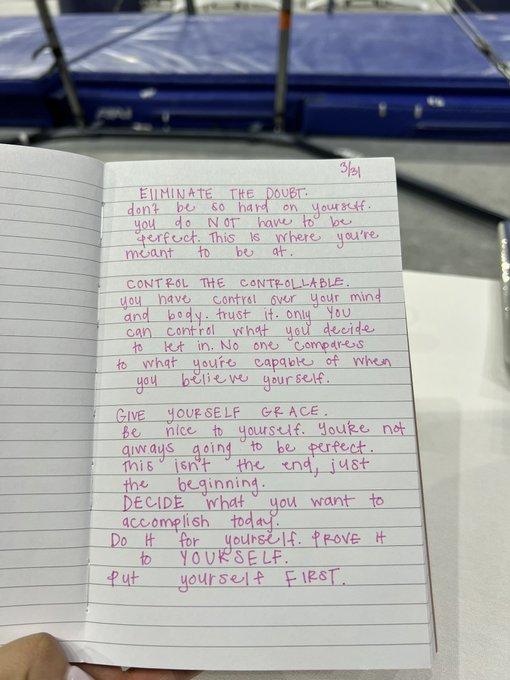 3/31
ElIMINATE THE DOUBT.
don't be so hard on yourself.
you do NOT have to be
perfect. This is where you're
meant to be at.
CONTROL THE CONTROLLABLE.
you have control over your mind
and body. trust it. only YOU
can control what you decide
to let in. No one compares
to what you're capable of when
you believe yourself.
GIVE YOURSELF GRACE.
Be nice to yourself. You're not
always going to be perfect.
This isn't the end, just
the beginning.
DECIDE what you want to
accomplish today.
Do it for yourself. PROVE it
to YOURSELF.
Put yourself FIRST.